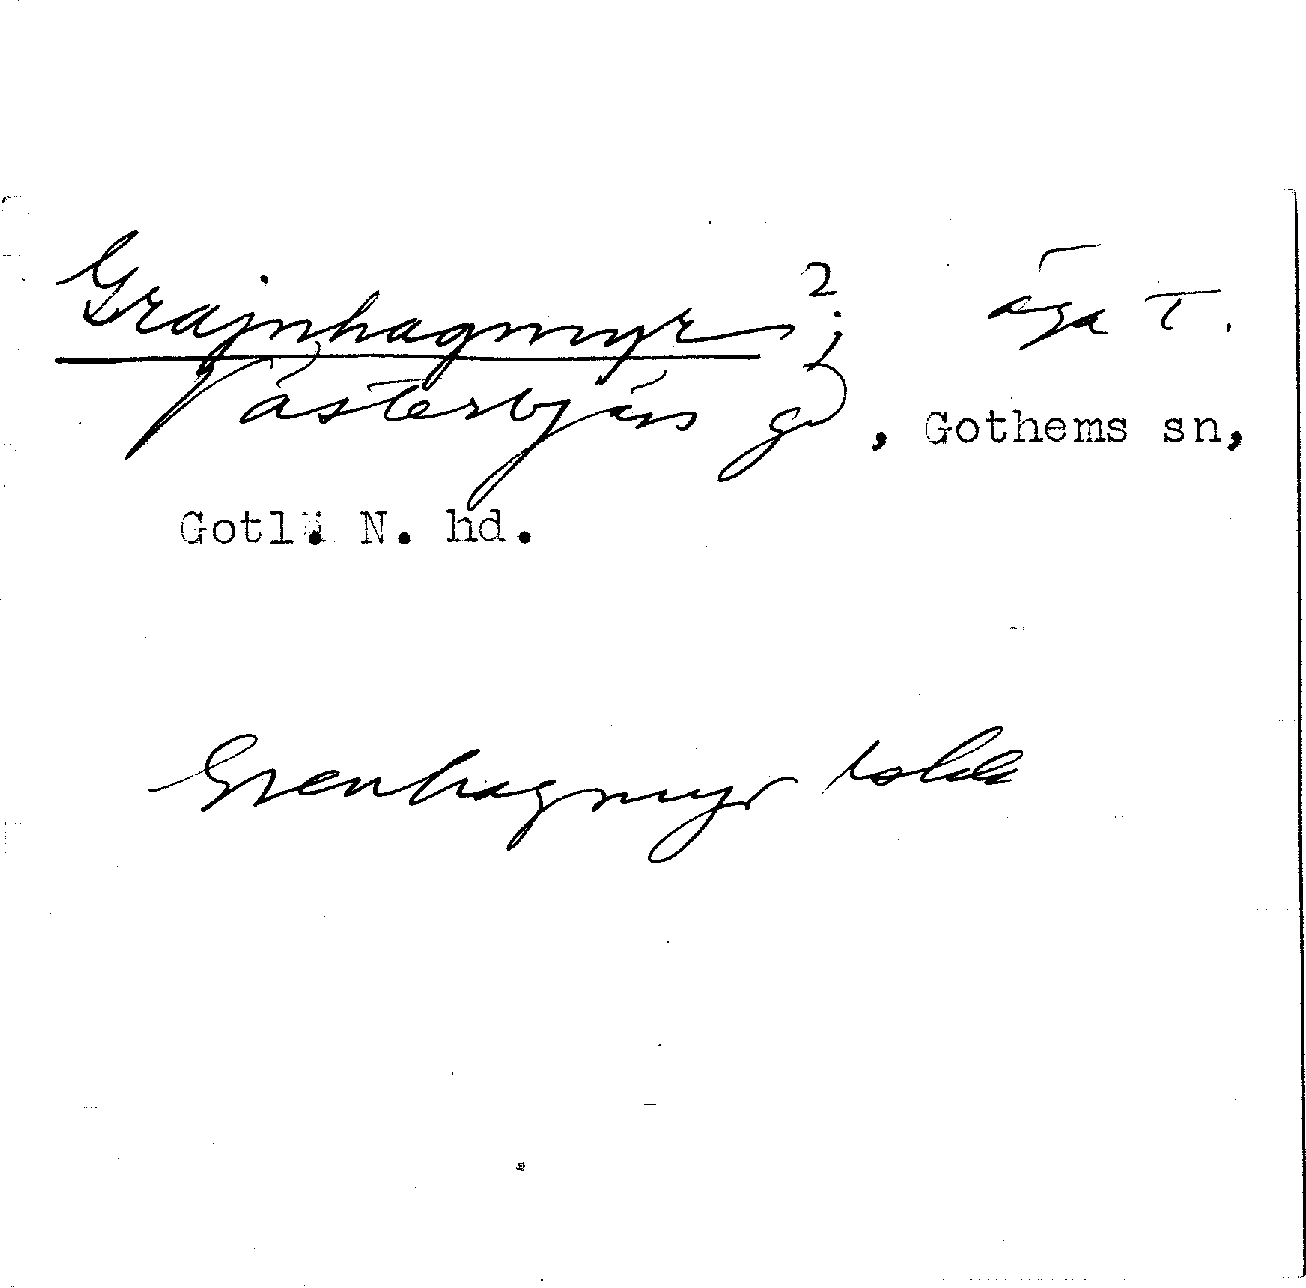 Grajnhagmyr 2; äga T.
Västerbjärs gd, Gothems sn,
Gotl. N. hd.
Grenhagmyr